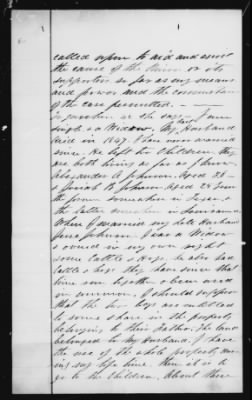 called upon to aid and assist
the cause of the Union or its
supporters so far as my means
and power and the circumstances
of the case permitted.
In question as she says I am
single & a Widow. My last Husband
died in 1847 I have not married
since. He left two children they
are both living as far as I know
Alexander A Johnson Aged 28
& Jacob B Johnson Aged 24 I am
the former somewhere in Texas &
the latter somewhere in Savannah
When I married my late Husband
Johnson. I was a Widow
& owned in my own right
some Cattle & Hogs. he also had
Cattle & hogs they have since that
time run together & been used
in common, I should suppose
that the two boys are entitled
to some share in the property
belonging to their Father. The land
belonged to my Husband. I have
the use of the whole property dur
ing my life time then it is to
go to the Children. About three